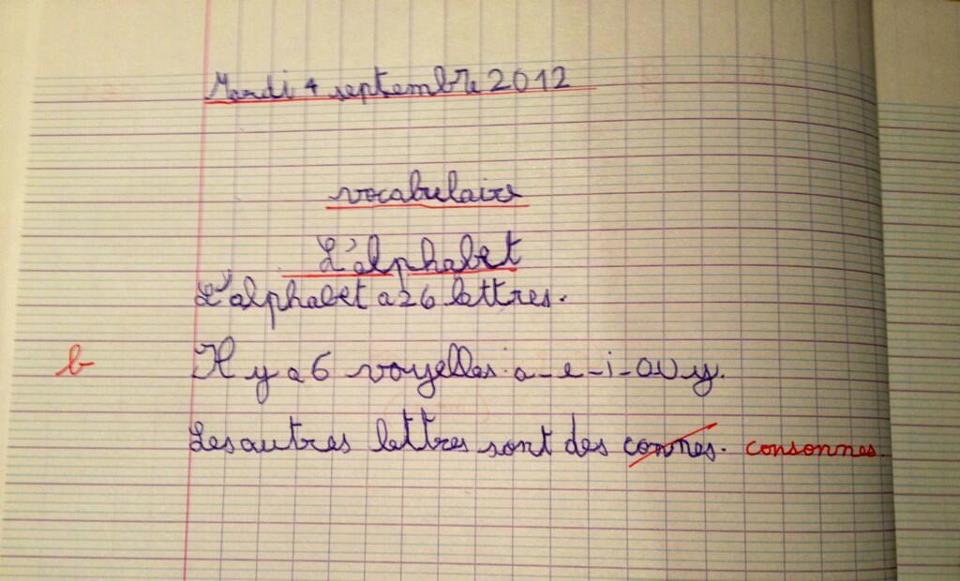 Mardi 4 septembre 2012
vocabulaire
L'alphabet
L'alphabet a 26 lettres.
b Il y a 6 voyelles: a-e-i-ouy.
Les autres lettres sont des connes. consonnes